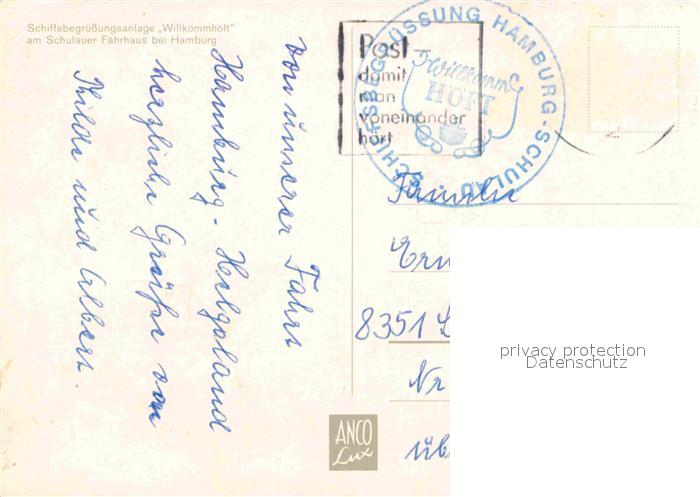 Schiffsbegrüßungsanlage „Willkommhöft"
am Schulauer Fährhaus bei Hamburg
Von unserer Fahrt
Hamburg - Helgoland
herzliche Grüße von
Hilde und Albert.
Post –
damit
man
voneinander
hört
SCHIFFSBEGRÜSSUNG HAMBURG-SCHULAU
Willkomm
HÖFT
Familie
8351
Nr
privacy protection
Datenschutz
ANCO
Lux